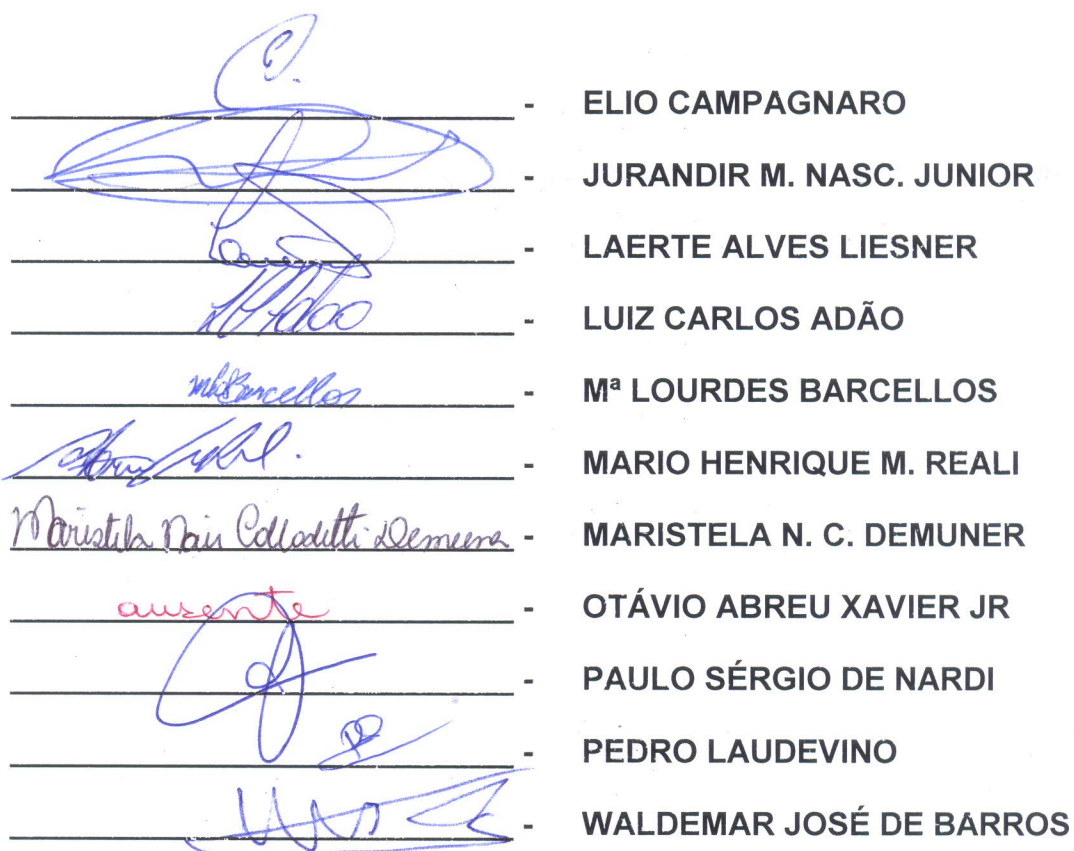 - ELIO CAMPAGNARO
- JURANDIR M. NASC. JUNIOR
- LAERTE ALVES LIESNER
- LUIZ CARLOS ADÃO
mLSBarcellos - Mª LOURDES BARCELLOS
- MARIO HENRIQUE M. REALI
Maristela Nair Collodetti Demuner - MARISTELA N. C. DEMUNER
ausente - OTÁVIO ABREU XAVIER JR
- PAULO SÉRGIO DE NARDI
- PEDRO LAUDEVINO
- WALDEMAR JOSÉ DE BARROS